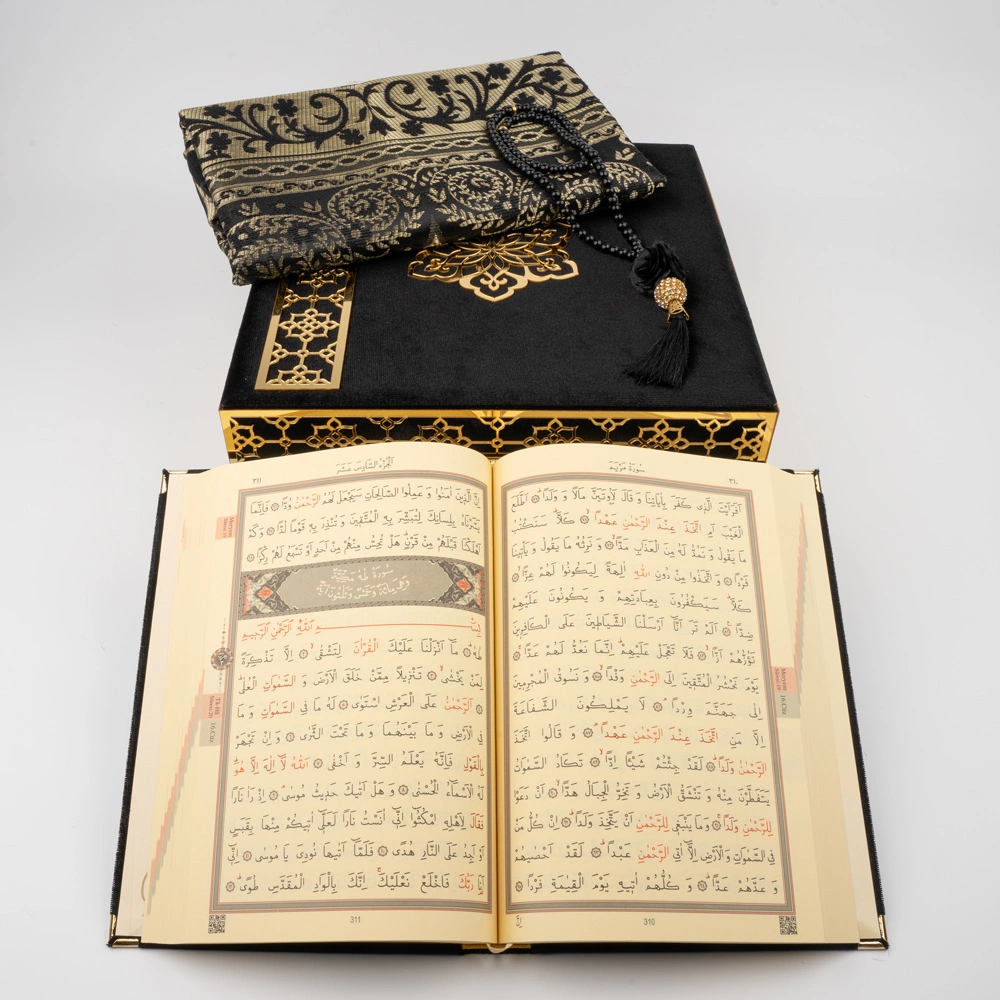 سورة مريم
٣١٠
اَفَرَاَيْتَ الَّذ۪ي كَفَرَ بِاٰيَاتِنَا وَ قَالَ لَاُو۫تَيَنَّ مَالًا وَ وَلَدًاۜ ۞ اَطَّلَعَ
الْغَيْبَ اَمِ اتَّخَذَ عِنْدَ الرَّحْمٰنِ عَهْدًاۙ ۞ كَلَّاۜ سَنَكْتُبُ
مَا يَقُولُ وَ نَمُدُّ لَهُ مِنَ الْعَذَابِ مَدًّاۙ ۞ وَ نَرِثُهُ مَا يَقُولُ وَ يَأْت۪ينَا
فَرْدًا ۞ وَ اتَّخَذُوا مِنْ دُونِ اللّٰهِ اٰلِهَةً لِيَكُونُوا لَهُمْ عِزًّاۙ ۞
كَلَّاۜ سَيَكْفُرُونَ بِعِبَادَتِهِمْ وَ يَكُونُونَ عَلَيْهِمْ
ضِدًّا۟ ۞ اَلَمْ تَرَ اَنَّٓا اَرْسَلْنَا الشَّيَاط۪ينَ عَلَى الْكَافِر۪ينَ
تَؤُزُّهُمْ اَزًّاۙ ۞ فَلَا تَعْجَلْ عَلَيْهِمْۜ اِنَّمَا نَعُدُّ لَهُمْ عَدًّاۚ ۞
يَوْمَ نَحْشُرُ الْمُتَّق۪ينَ اِلَى الرَّحْمٰنِ وَفْدًاۙ ۞ وَ نَسُوقُ الْمُجْرِم۪ينَ
اِلٰى جَهَنَّمَ وِرْدًاۢ ۞ لَا يَمْلِكُونَ الشَّفَاعَةَ
اِلَّا مَنِ اتَّخَذَ عِنْدَ الرَّحْمٰنِ عَهْدًاۢ ۞ وَ قَالُوا اتَّخَذَ
الرَّحْمٰنُ وَلَدًاۜ ۞ لَقَدْ جِئْتُمْ شَيْـًٔا اِدًّاۙ ۞ تَكَادُ السَّمٰوَاتُ
يَتَفَطَّرْنَ مِنْهُ وَ تَنْشَقُّ الْاَرْضُ وَ تَخِرُّ الْجِبَالُ هَدًّاۙ ۞ اَنْ دَعَوْا
لِلرَّحْمٰنِ وَلَدًاۚ ۞ وَمَا يَنْبَغ۪ي لِلرَّحْمٰنِ اَنْ يَتَّخِذَ وَلَدًاۜ ۞ اِنْ كُلُّ مَنْ
فِي السَّمٰوَاتِ وَالْاَرْضِ اِلَّٓا اٰتِي الرَّحْمٰنِ عَبْدًاۜ ۞ لَقَدْ اَحْصٰيهُمْ
وَ عَدَّهُمْ عَدًّاۜ ۞ وَ كُلُّهُمْ اٰت۪يهِ يَوْمَ الْقِيٰمَةِ فَرْدًا ۞
310
الجزء السادس عشر
٣١١
اِنَّ الَّذ۪ينَ اٰمَنُوا وَ عَمِلُوا الصَّالِحَاتِ سَيَجْعَلُ لَهُمُ الرَّحْمٰنُ وُدًّا ۞ فَاِنَّمَا
يَسَّرْنَاهُ بِلِسَانِكَ لِتُبَشِّرَ بِهِ الْمُتَّق۪ينَ وَ تُنْذِرَ بِه۪ قَوْمًا لُدًّا ۞ وَ كَمْ
اَهْلَكْنَا قَبْلَهُمْ مِنْ قَرْنٍۜ هَلْ تُحِسُّ مِنْهُمْ مِنْ اَحَدٍ اَوْ تَسْمَعُ لَهُمْ رِكْزًا ۞
سورة طه مكية
وهي مائة وخمس وثلثون اية
بِسْمِ اللّٰهِ الرَّحْمٰنِ الرَّح۪يمِ
طٰهٰۜ ۞ مَٓا اَنْزَلْنَا عَلَيْكَ الْقُرْاٰنَ لِتَشْقٰىۙ ۞ اِلَّا تَذْكِرَةً
لِمَنْ يَخْشٰىۙ ۞ تَنْز۪يلًا مِمَّنْ خَلَقَ الْاَرْضَ وَ السَّمٰوَاتِ الْعُلٰىۜ
۞ اَلرَّحْمٰنُ عَلَى الْعَرْشِ اسْتَوٰى ۞ لَهُ مَا فِي السَّمٰوَاتِ وَ مَا
فِي الْاَرْضِ وَ مَا بَيْنَهُمَا وَ مَا تَحْتَ الثَّرٰى ۞ وَ اِنْ تَجْهَرْ
بِالْقَوْلِ فَاِنَّهُ يَعْلَمُ السِّرَّ وَ اَخْفٰى ۞ اَللّٰهُ لَٓا اِلٰهَ اِلَّا هُوَۜ
لَهُ الْاَسْمَٓاءُ الْحُسْنٰى ۞ وَ هَلْ اَتٰيكَ حَد۪يثُ مُوسٰىۢ ۞ اِذْ رَاٰ نَارًا
فَقَالَ لِاَهْلِهِ امْكُثُٓوا اِنّ۪ٓي اٰنَسْتُ نَارًا لَعَلّ۪ٓي اٰت۪يكُمْ مِنْهَا بِقَبَسٍ
اَوْ اَجِدُ عَلَى النَّارِ هُدًى ۞ فَلَمَّٓا اَتٰيهَا نُودِيَ يَا مُوسٰى ۞ اِنّ۪ٓي
اَنَا رَبُّكَ فَاخْلَعْ نَعْلَيْكَۚ اِنَّكَ بِالْوَادِ الْمُقَدَّسِ طُوًىۜ ۞
311
Meryem
Sûresi 19
16.Cüz
Meryem
Sûresi
Tâ-Hâ
Sûresi 20
16.Cüz